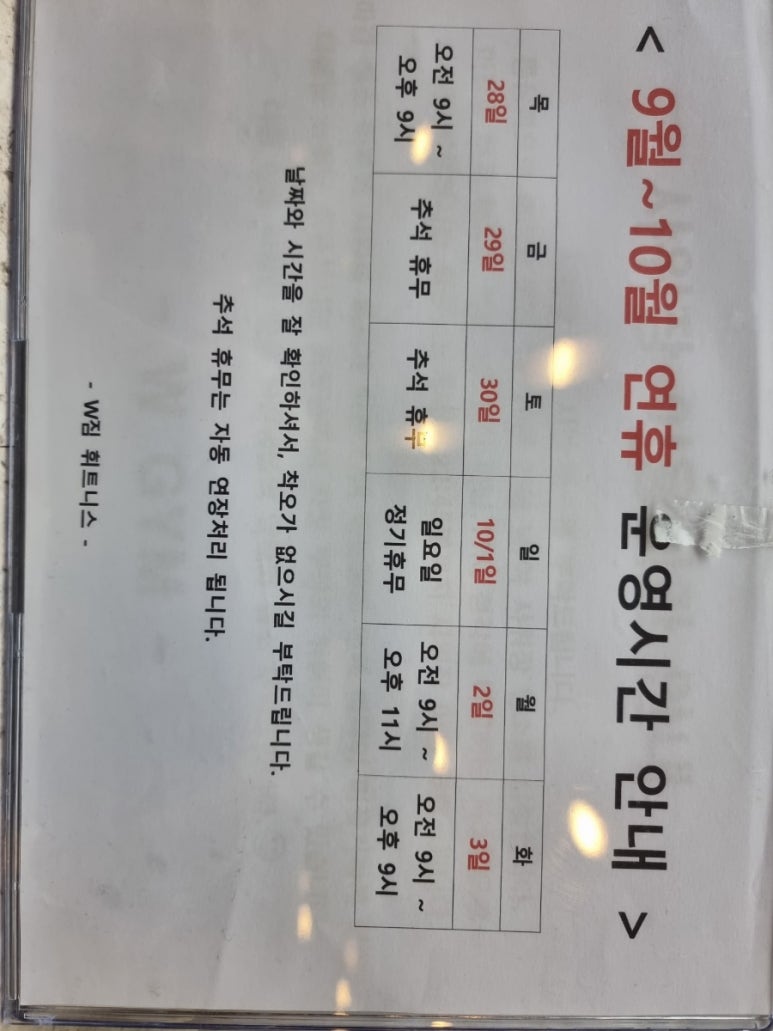 < 9월~10월 연휴 운영시간 안내 >
목 금 토 일 월 화
28일 29일 30일 10/1일 2일 3일
오전 9시 ~ 오후 9시
추석 휴무
추석 휴무
일요일 정기휴무
오전 9시 ~ 오후 11시
오전 9시 ~ 오후 9시
날짜와 시간을 잘 확인하셔서, 착오가 없으시길 부탁드립니다.
추석 휴무는 자동 연장처리 됩니다.
- W짐 휘트니스 -